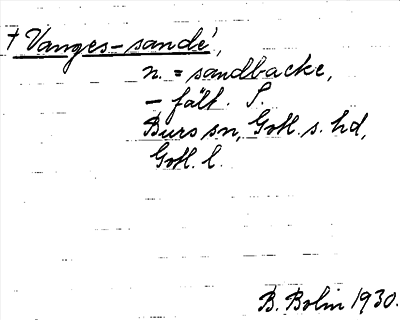 † Vanges-sandé,
n. = sandbacke,
- fält. S.
Burs sn, Gotl. s. hd,
Gotl. l.
B. Bolin 1930.